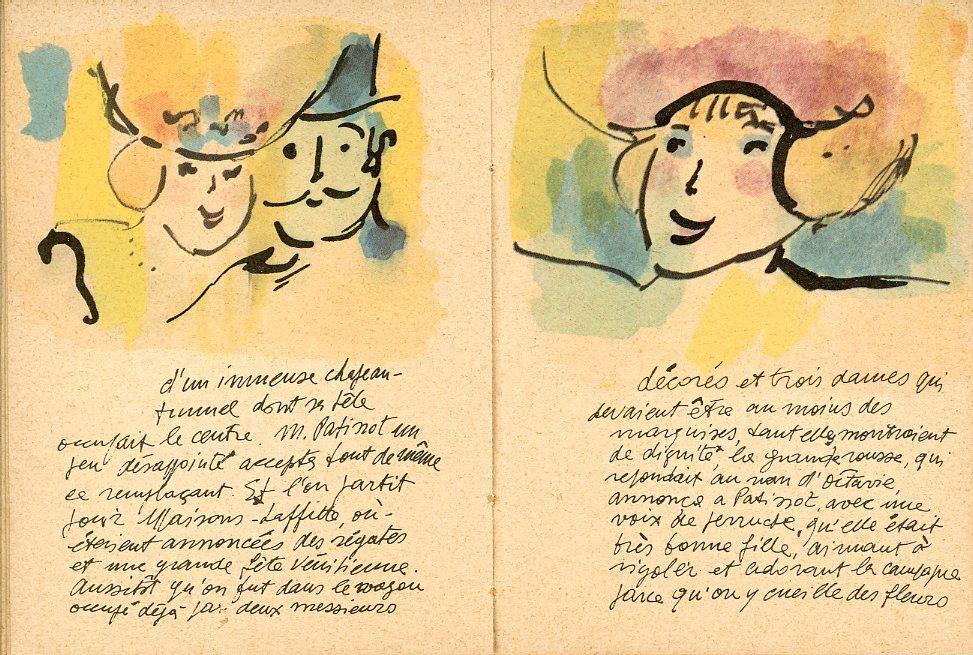 d'un immense chapeau-
tunnel dont sa tête
occupait le centre. M. Patissot un
peu désappointé accepta tout de même
ce remplaçant. Et l'on partit
pour Maisons-Laffitte, où
étaient annoncées des régates
et une grande fête vénitienne.
Aussitôt qu'on fut dans le wagon
occupé déjà par deux messieurs
décorés et trois dames qui
devaient être au moins des
marquises, tant elles montraient
de dignité, la grande rousse, qui
répondait au nom d'Octavie
annonça à Patissot, avec une
voix de perruche, qu'elle était
très bonne fille, aimant à
rigoler et adorant la campagne
parce qu'on y cueille des fleurs